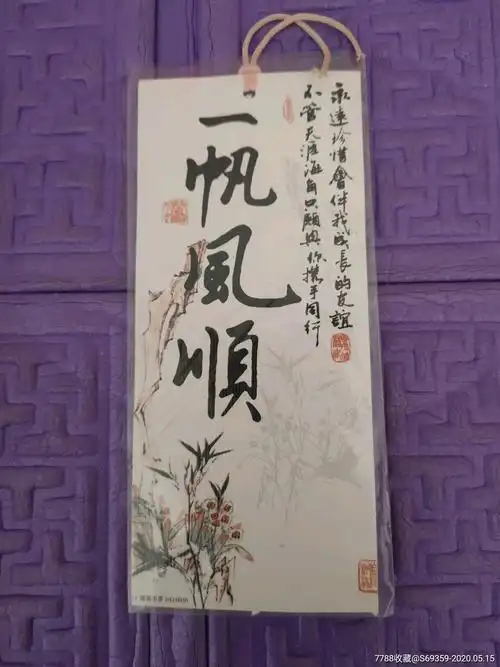 永遠珍惜會伴我成長的友誼
不管天涯海角只願與你携手同行
一帆風順
7788收藏@S69359-2020.05.15